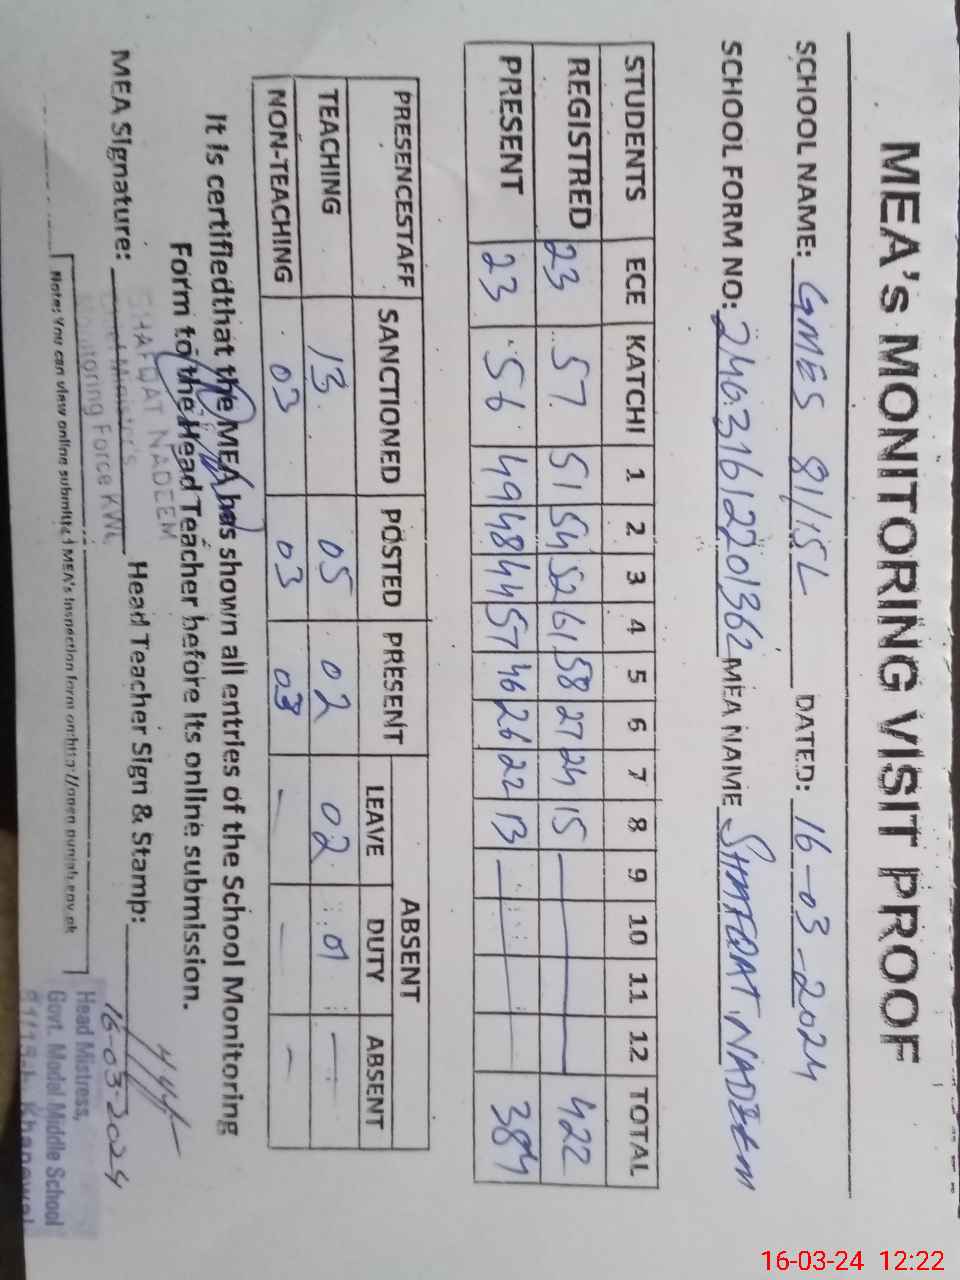 MEA'S MONITORING VISIT PROOF
SCHOOL NAME: GMES 81/15L DATED: 16-03-2024
SCHOOL FORM NO: 24031612201362 MEA NAME SHAFQAT NADEEM
STUDENTS ECE KATCHI 1 2 3 4 5 6 7 8 9 10 11 12 TOTAL
REGISTRED 23 57 51 54 52 61 58 27 24 15 422
PRESENT 23 56 49 48 44 57 46 26 22 13 384
PRESENCESTAFF SANCTIONED POSTED PRESENT ABSENT
LEAVE DUTY ABSENT
TEACHING 13 05 02 02 01 -
NON-TEACHING 03 03 03 - - -
It is certifiedthat the MEA has shown all entries of the School Monitoring
Form to the Head Teacher before its online submission.
MEA Signature: Head Teacher Sign & Stamp:
SHAFQAT NADEEM
Chief Minister's
Monitoring Force KWL
16-03-2024
Head Mistress,
Govt. Modal Middle School
81/15-L Khanewal
Note: You can view online submitted MEA's Inspection form on:http://open.punjab.gov.pk
16-03-24 12:22